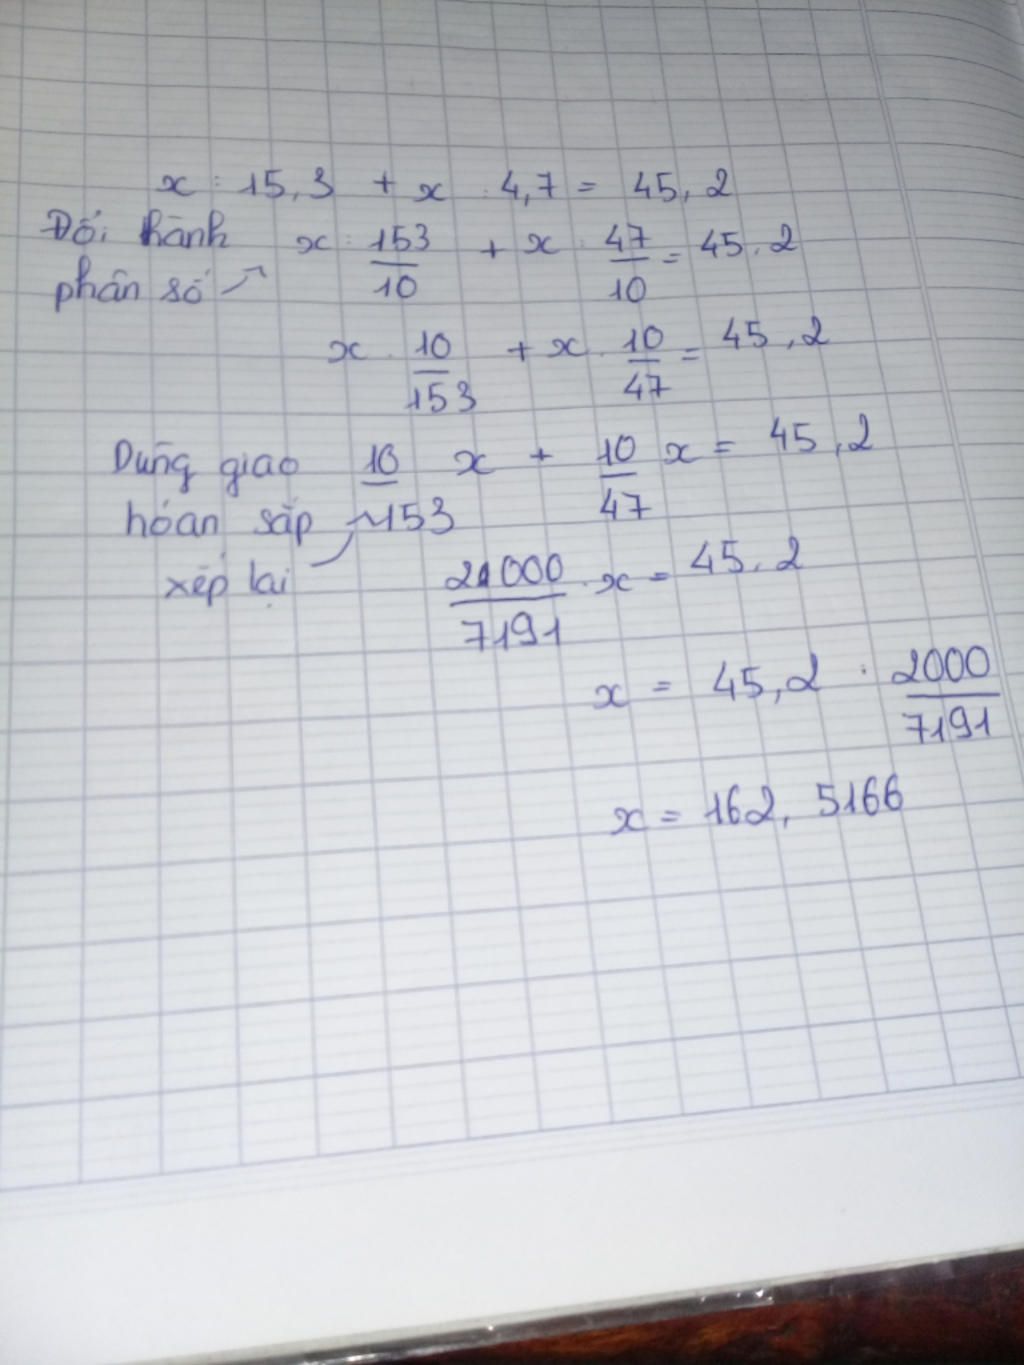 x : 15,3 + x : 4,7 = 45,2
Đổi thành phân số x : 153/10 + x : 47/10 = 45,2
x . 10/153 + x . 10/47 = 45,2
Dùng giao hóan sắp xếp lại 10/153 x + 10/47 x = 45,2
2000/7191 . x = 45,2
x = 45,2 : 2000/7191
x = 162,5166